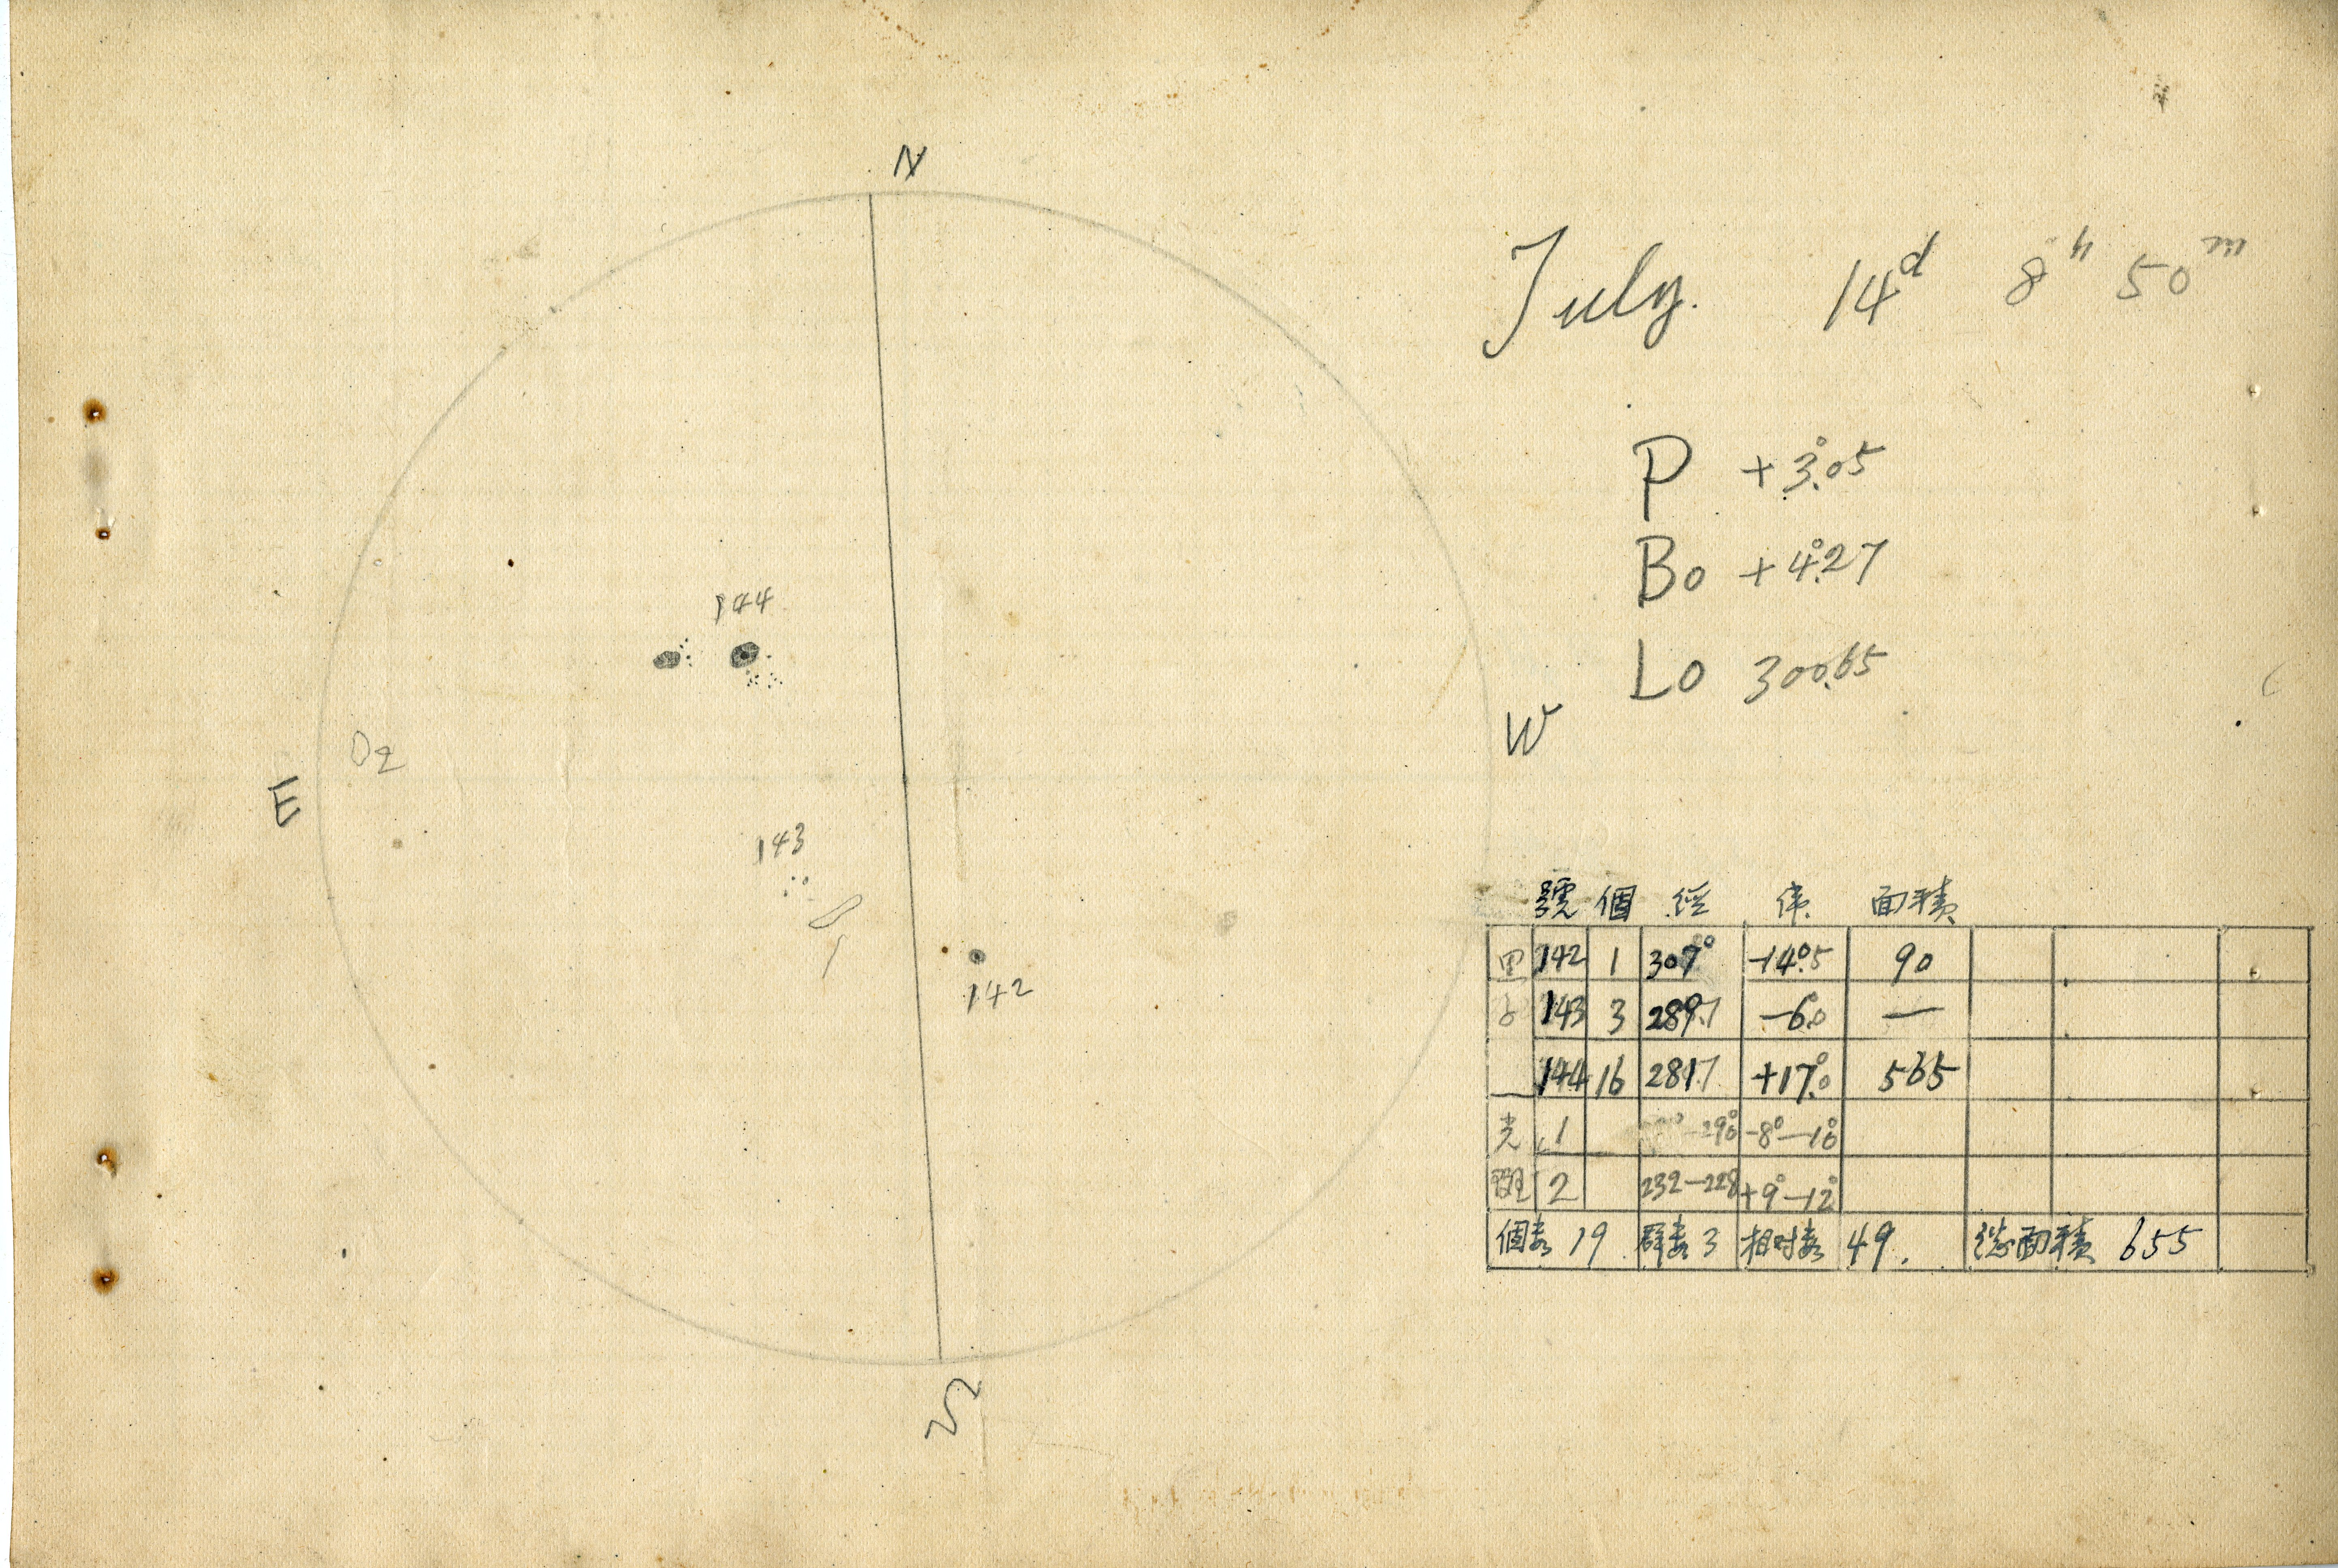 N
July. 14d 8h 50m
P +3°.05
B0 +4°.27
L0 300.65
144
W
2
E
143
1
142
S
號 個 経 緯 面積
黒 142 1 307° -14°.5 90
143 3 289.7 -6.0 —
144 16 281.7 +17°.0 565
光 1 -290° -8°—10°
斑 2 232—228 +9°—12°
個数 19 群数 3 相対数 49. 総面積 655